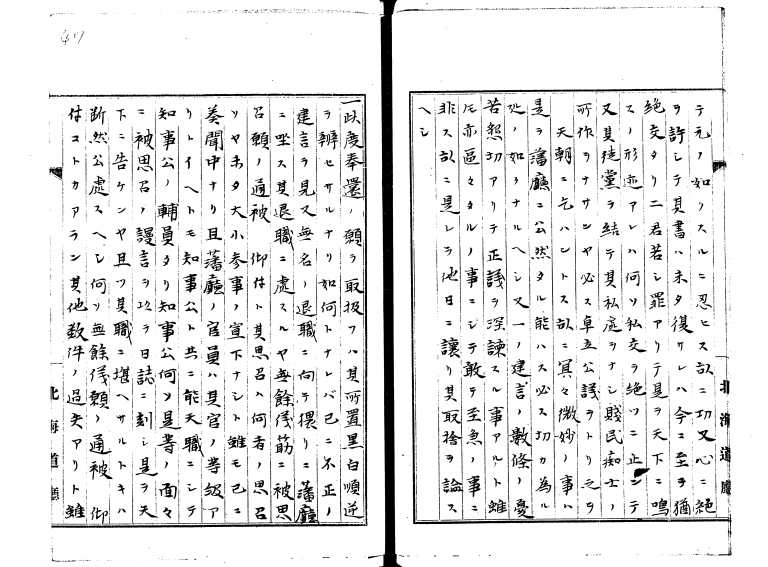 テ元ノ如ノスルニ忍ヒス故ニ切又心ニ絶
ヲ許シテ其書ハ未タ復サレハ今ニ至ヲ猶
絶交タリ二君若シ罪アリテ是ヲ天下ニ鳴
スノ形迹アレハ何ソ私交ヲ絶ツニ止ンテ
又其徒党ヲ結テ其私處ヲナシ賤民痴士ノ
所作ヲナサンヤ必ス卓立公議ヲトリ之ヲ
天朝ニ乞ハントス故ニ冥々微妙ノ事ハ
是ヲ藩廳ニ公然タル能ハス必ス切カ為ル
処ノ如ヲナルヘシ又一ノ建言ノ数條ノ憂
苦懇切アリテ正議ヲ深諫スル事アルト雖
モ亦區々タルノ事ニシテ敢テ至急ノ事ニ
非ス故ニ是レヲ他日ニ譲リ其取捨ヲ論ス
ヘシ
北海道廳
47
一此度奉還ノ願ヲ取扱フハ其所置黒白順逆
ヲ辨セサルナリ如何トナレハ已ニ不正ノ
建言ヲ見又無名ノ退職ニ向テ猥リニ藩廳
ニ坐ス其退職ニ處スルヤ無餘儀筋ニ被思
召願ノ通被仰付ト其思召ハ何者ノ思召
ソヤ未タ大小参事ノ宣下ナシト雖モ已ニ
奏聞中ナリ且藩廳ノ官員ハ其官ノ等級ア
リトイヘトモ知事公ト共ニ能天職ニシテ
知事公ノ輔員タリ知事公何ソ是等ノ面々
ニ被思召ノ謾言ヲ以ヲ日誌ニ刻シ是ヲ天
下ニ告ケンヤ且ツ其職ニ堪ヘサルトキハ
断然公處スヘシ何ソ無餘儀願ノ通被仰
付ストカアラン其他数件ノ過失アリト雖
北海道廳